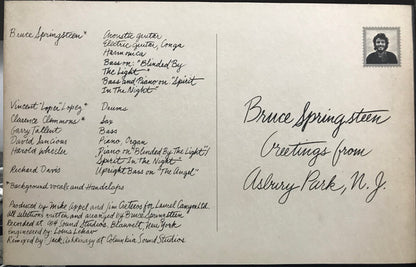 Bruce Springsteen*
Acoustic guitar
Electric Guitar, Conga
Harmonica
Bass on "Blinded By
The Light"
Bass and Piano on "Spirit
In The Night"
Vincent "Loper" Lopez*
Drums
Clarence Clemmons*
Sax
Garry Tallent
Bass
David Sancious
Piano, Organ
Harold Wheeler
Piano on "Blinded By The Light"/
Spirit In The Night"
Richard Davis
Upright Bass on "The Angel"
*Background vocals and Handclaps
Produced by Mike Appel and Jim Cretecos for Laurel Canyon Ltd.
All selections written and arranged by Bruce Springsteen
Recorded at 914 Sound Studios, Blauvelt, New York
engineered by: Louis Lahav
Remixed by: Jack Ashkinazy at Columbia Sound Studios
Bruce Springsteen
Greetings from
Asbury Park, N. J.